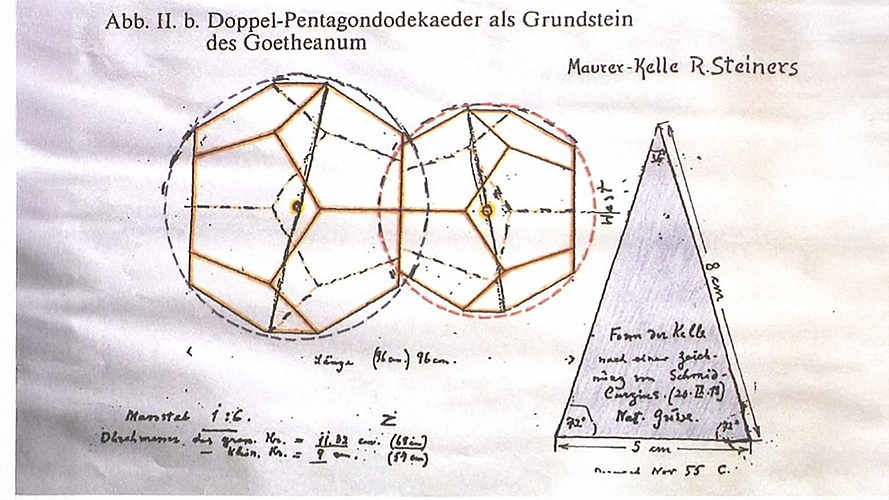 Abb. II. b. Doppel-Pentagondodekaeder als Grundstein
des Goetheanum
Maurer-Kelle R. Steiners
36
West
8 cm
Form der Kelle
nach einer Zeich-
nung von Schmid-
Curzius. (20. IX. 13)
Nat. Grösse.
72°
72°
5 cm
Länge 96 cm.
Masstab 1:6.
Durchmesser des gross. Kr. = cm.
klein. Kr. = 9 cm. (54 cm)
55